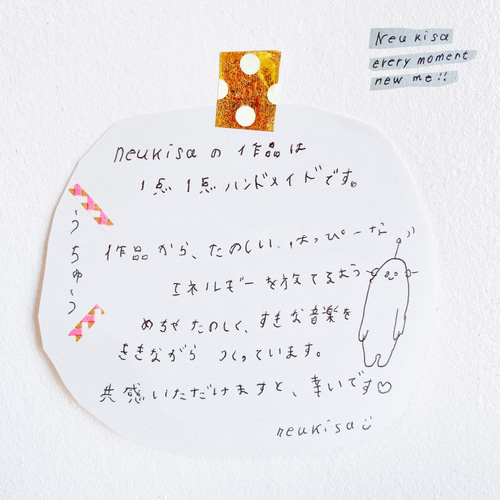 Neukisa
every moment
new me!!
neukisaの作品は
1点1点ハンドメイドです。
うちゅう
作品から、たのしい、はっぴーな
エネルギーを放てるよう
めちゃたのしく、すきな音楽を
ききながら つくっています。
共感いただけますと、幸いです♡
neukisa